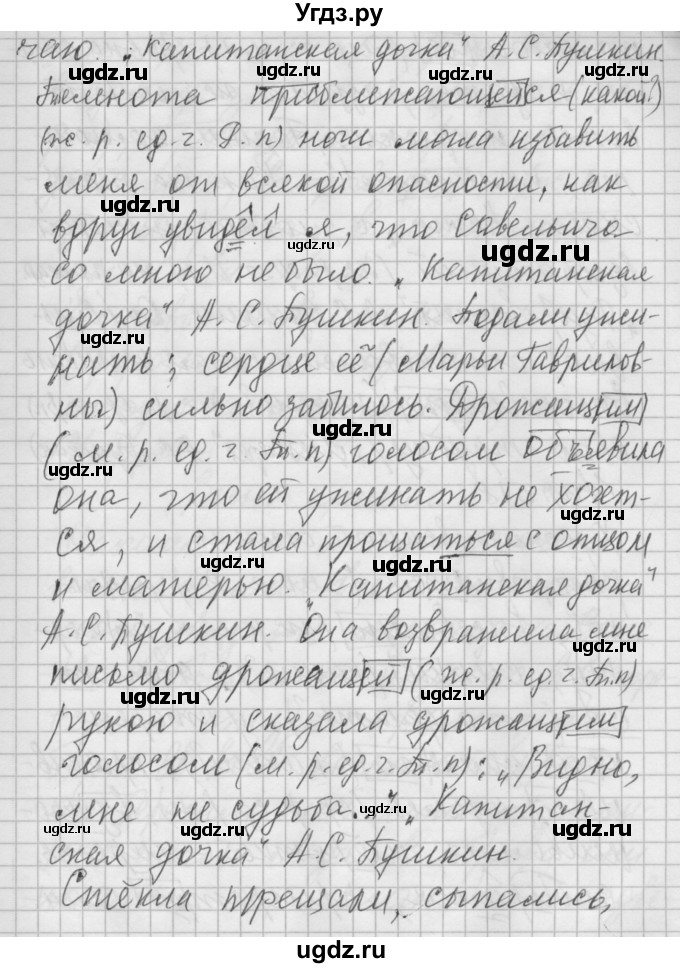 Угдз.ру
чаю „Капитанская дочка“ А.С.Пушкин.
Темнота приближающейся (какой?)
(ж. р. ед. ч. Р. п) ночи могла избавить
меня от всякой опасности, как
вдруг увидел я, что Савельича
со мною не было. „Капитанская
дочка“ А. С. Пушкин. Подали ужи-
нать; сердце её (Марьи Гаврилов-
ны) сильно забилось. Дрожащим
(м. р. ед. ч. Т. п) голосом объявила
она, что ей ужинать не хочет-
ся, и стала прощаться с отцом
и матерью. „Капитанская дочка“
А.С.Пушкин. Она возвратила мне
письмо дрожащей (ж. р. ед. ч. Т. п)
рукою и сказала дрожащим
голосом (м. р. ед. ч. Т. п): „Видно,
мне не судьба..“ „Капитан-
ская дочка“ А.С.Пушкин.
Стёкла трещали, сыпались,
ugdz.ru